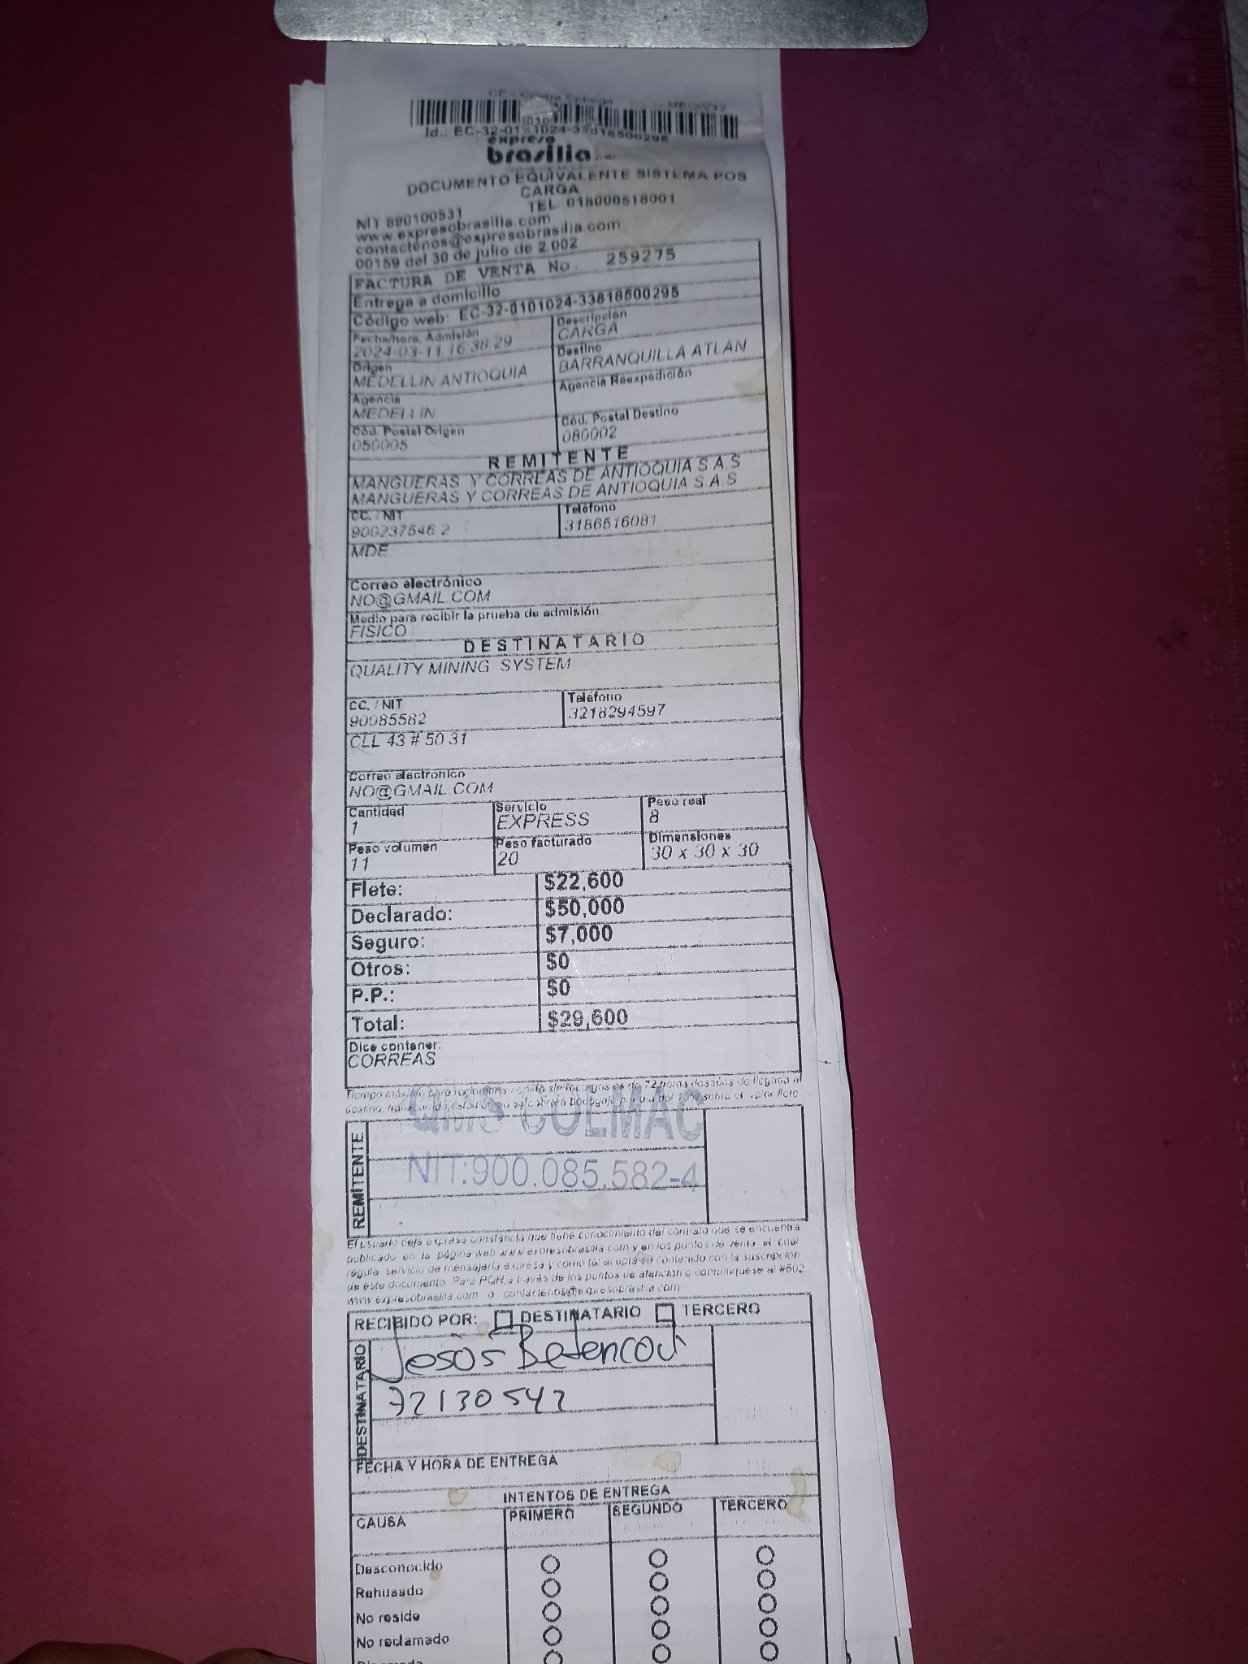 Id.: EC-32-0101024-33818500295
expreso
brasilia
DOCUMENTO EQUIVALENTE SISTEMA POS
CARGA
NIT 890100531 TEL. 018000518001
www.expresobrasilia.com
contactenos@expresobrasilia.com
00159 del 30 de julio de 2.002
FACTURA DE VENTA No. 259275
Entrega a domicilio
Código web: EC-32-0101024-33818500295
Fecha/hora. Admisión Descripción
2024-03-11 16:38:29 CARGA
Origen Destino
MEDELLIN ANTIOQUIA BARRANQUILLA ATLAN
Agencia Agencia Reexpedición
MEDELLIN
Cód. Postal Origen Cód. Postal Destino
050005 080002
REMITENTE
MANGUERAS Y CORREAS DE ANTIOQUIA S A S
MANGUERAS Y CORREAS DE ANTIOQUIA S.A.S
CC. / NIT Teléfono
900237546 2 3186516081
MDE
Correo electrónico
NO@GMAIL.COM
Medio para recibir la prueba de admisión
FISICO
DESTINATARIO
QUALITY MINING SYSTEM
CC. / NIT Teléfono
90085582 3218294597
CLL 43 # 50 31
Correo electrónico
NO@GMAIL.COM
Cantidad Servicio Peso real
1 EXPRESS 8
Peso volumen Peso facturado Dimensiones
11 20 30 x 30 x 30
Flete: $22,600
Declarado: $50,000
Seguro: $7,000
Otros: $0
P.P.: $0
Total: $29,600
Dice contener:
CORREAS
QMS COLMAC
NIT:900.085.582-4
REMITENTE
El usuario deja expresa constancia que tiene conocimiento del contrato que se encuentra
publicado en la página web www.expresobrasilia.com y en los puntos de venta, el cual
regula servicio de mensajería expresa y como tal acepta su contenido con la suscripción
de este documento. Para PQR, a través de los puntos de atención o comuníquese al #502
www.expresobrasilia.com o contactenos@expresobrasilia.com
RECIBIDO POR: DESTINATARIO TERCERO
DESTINATARIO
Jesús Betencout
72130542
FECHA Y HORA DE ENTREGA
INTENTOS DE ENTREGA
CAUSA PRIMERO SEGUNDO TERCERO
Desconocido
Rehusado
No reside
No reclamado